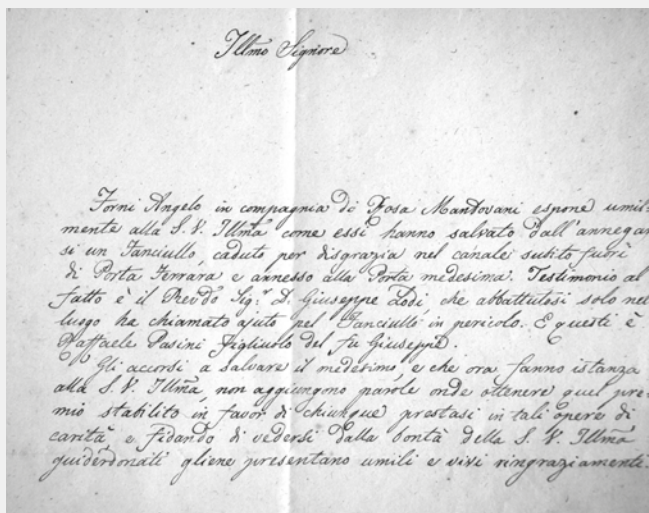 Illmo Signore
Forni Angelo in compagnia di Rosa Mantovani espone umil=
mente alla S. V. Illma come essi hanno salvato dall'annegar
si un Fanciullo, caduto per disgrazia nel canale subito fuori
di Porta Ferrara e annesso alla Porta medesima. Testimonio al
fatto è il Revdo Sigr. D. Giuseppe Lodi che abbattutosi solo nel
luogo ha chiamato ajuto pel Fanciullo in pericolo. E questi è
Raffaele Pasini Figliuolo del fù Giuseppe.
Gli accorsi a salvare il medesimo, e che ora fanno istanza
alla S. V. Illma, non aggiungono parole onde ottenere quel pre=
mio stabilito in favor di chiunque prestasi in tali opere di
carità, e fidando di vedersi dalla bontà della S. V. Illma
guiderdonati gliene presentano umili e vivi ringraziamenti.